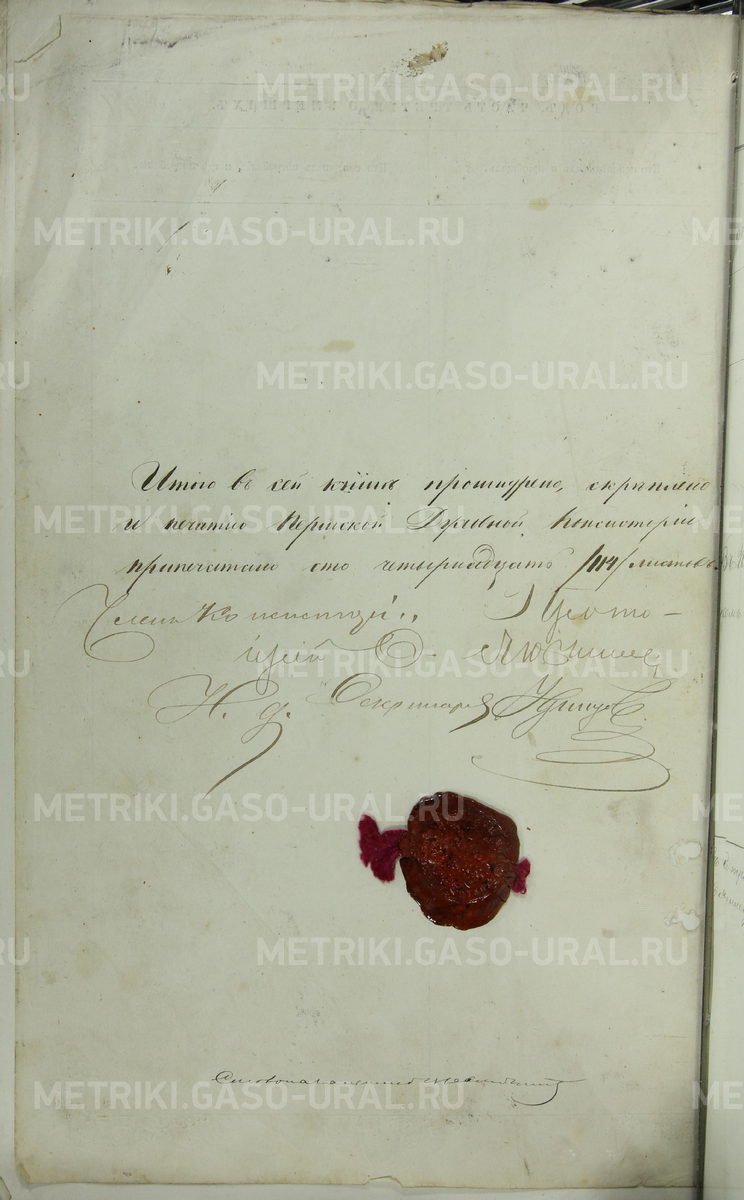 METRIKI.GASO-URAL.RU
METRIKI.GASO-URAL.RU
METRIKI.GASO-URAL.RU
Итого въ сей книгѣ прошнурено, скрѣплено
METRIKI.GASO-URAL.RU
и печатью Пермской Духовной Консисторіи
припечатано сто четырнадцать /114/ листовъ.
Членъ Консисторіи, Прото-
іерей
И. д. Секретаря
METRIKI.GASO-URAL.RU
METRIKI.GASO-URAL.RU
METRIKI.GASO-URAL.RU